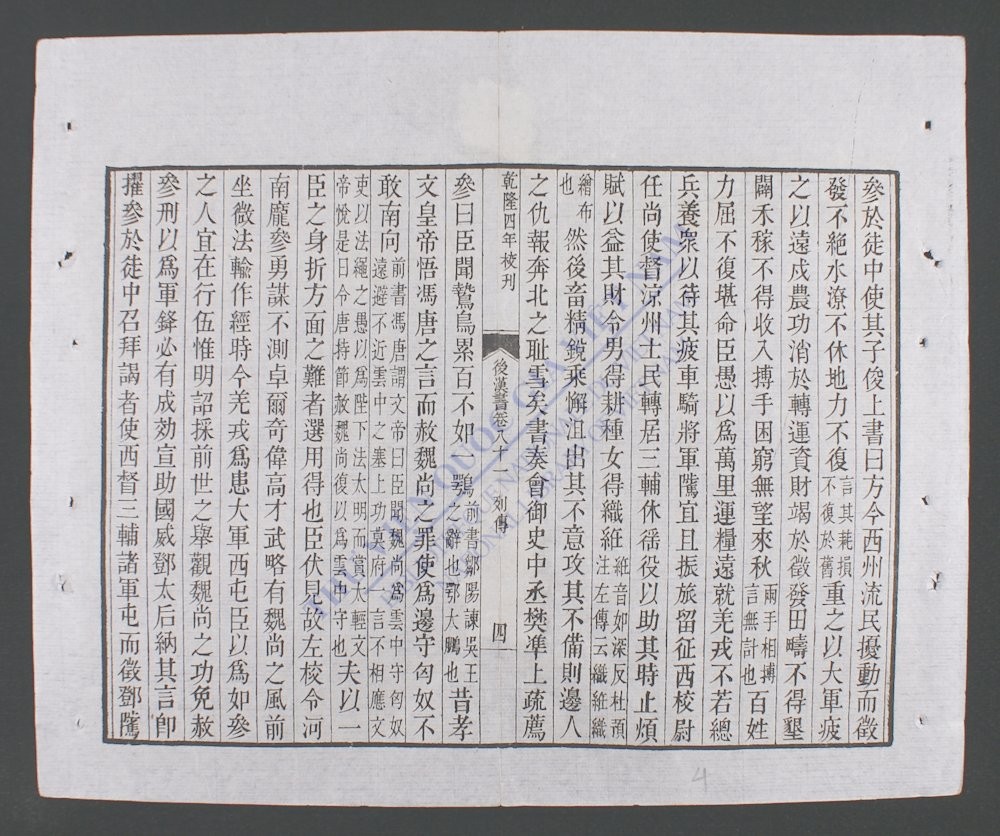 參於徒中使其子俊上書曰方今西州流民擾動而徵
發不絶水潦不休地力不復言其耗損不復於舊重之以大軍疲
之以遠戍農功消於轉運資財竭於徵發田疇不得墾
闢禾稼不得收入搏手困窮無望來秋兩手相搏言無計也百姓
力屈不復堪命臣愚以爲萬里運糧遠就羌戎不若總
兵養衆以待其疲車騎將軍騭宜且振旅留征西校尉
任尚使督涼州士民轉居三輔休徭役以助其時止煩
賦以益其財令男得耕種女得織紝紝音如深反杜預注左傳云織紝織
繒布也然後畜精銳乘懈沮出其不意攻其不備則邊人
之仇報奔北之耻雪矣書奏會御史中丞樊準上疏薦
乾隆四年校刊
後漢書卷八十一 列傳
四
參曰臣聞鷙鳥累百不如鶚前書鄒陽諫吳王之辭也鄂大鵰也昔孝
文皇帝悟馮唐之言而赦魏尚之罪使爲邊守匈奴不
敢南向前書馮唐謂文帝曰臣聞魏尚爲雲中守匈奴遠避不近雲中之塞上功莫府一言不相應文
吏以法繩之愚以爲陛下法太明而賞太輕文帝悅是日令唐持節赦魏尚復以爲雲中守也夫以一
臣之身折方面之難者選用得也臣伏見故左校令河
南龐參勇謀不測卓爾奇偉高才武略有魏尚之風前
坐微法輸作經時今羌戎爲患大軍西屯臣以爲如參
之人宜在行伍惟明詔採前世之舉觀魏尚之功免赦
參刑以爲軍鋒必有成効宣助國威鄧太后納其言卽
擢參於徒中召拜謁者使西督三輔諸軍屯而徵鄧騭
THƯ VIỆN QUỐC GIA VIỆT NAM
NATIONAL LIBRARY OF VIETNAM
4